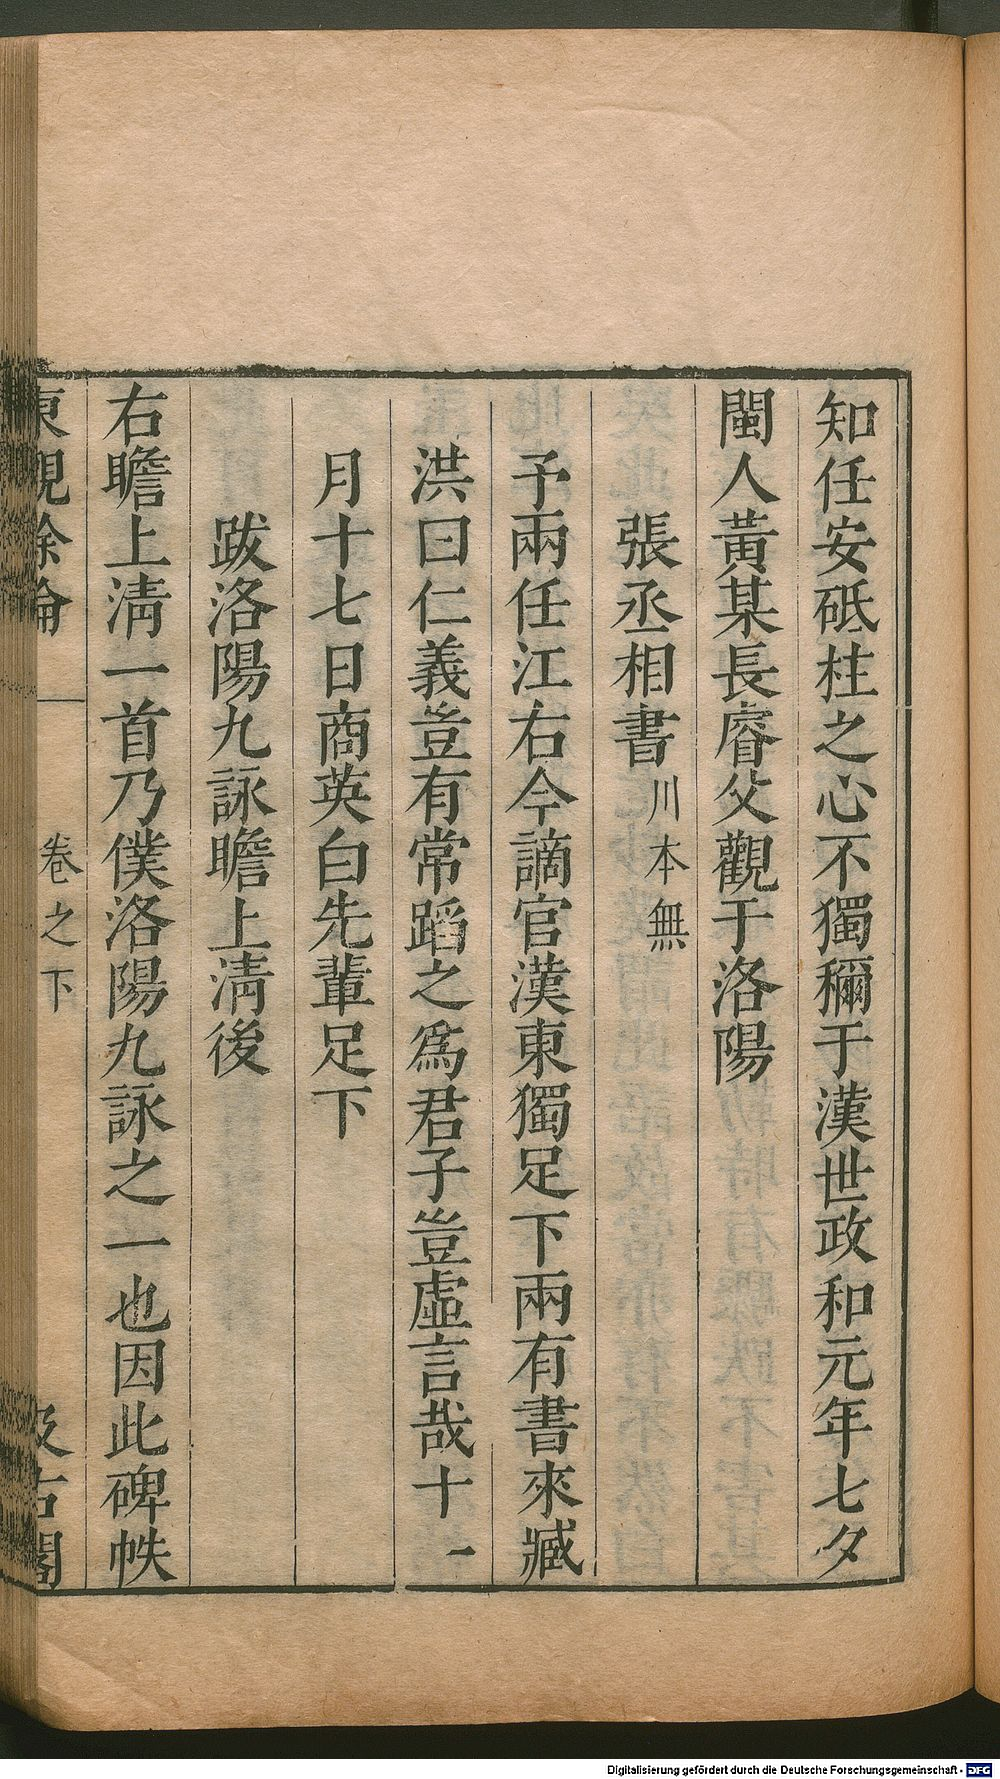 知任安砥柱之心不獨穪于漢世政和元年七夕
閩人黃某長睿父觀于洛陽
張丞相書川本無
予兩任江右今謫官漢東獨足下兩有書來臧
洪曰仁義豈有常蹈之爲君子豈虛言哉十一
月十七日商英白先輩足下
跋洛陽九詠瞻上淸後
右瞻上淸一首乃僕洛陽九詠之一也因此碑帙
東觀餘論
卷之下
汲古閣
Digitalisierung gefördert durch die Deutsche Forschungsgemeinschaft - DFG